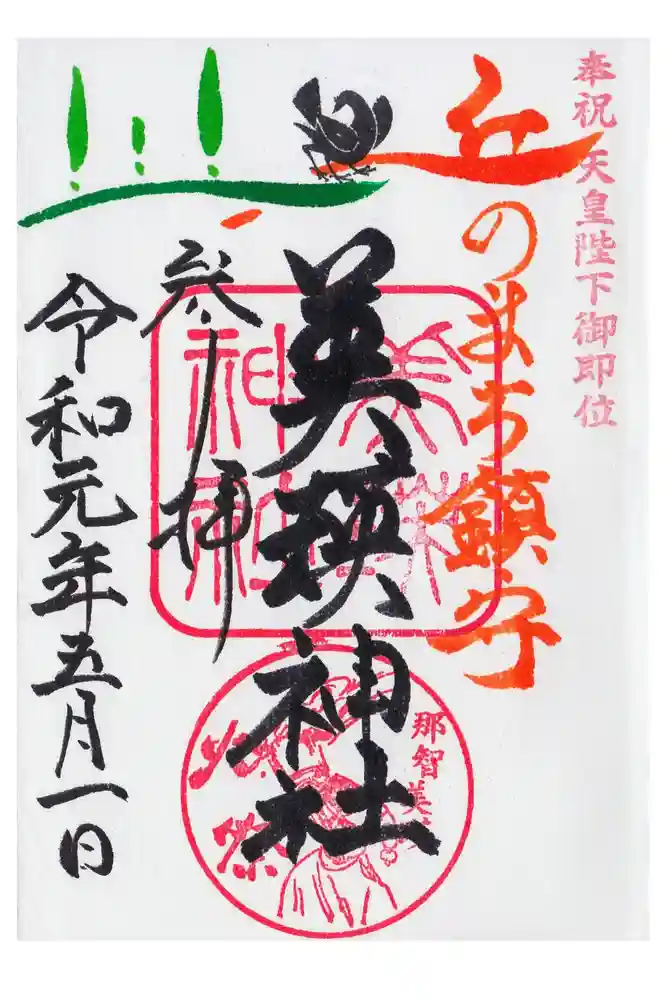 奉祝 天皇陛下御即位
丘のまち鎮守
美瑛神社
美瑛神社
参拝
令和元年五月一日
那智美瑛
火祭